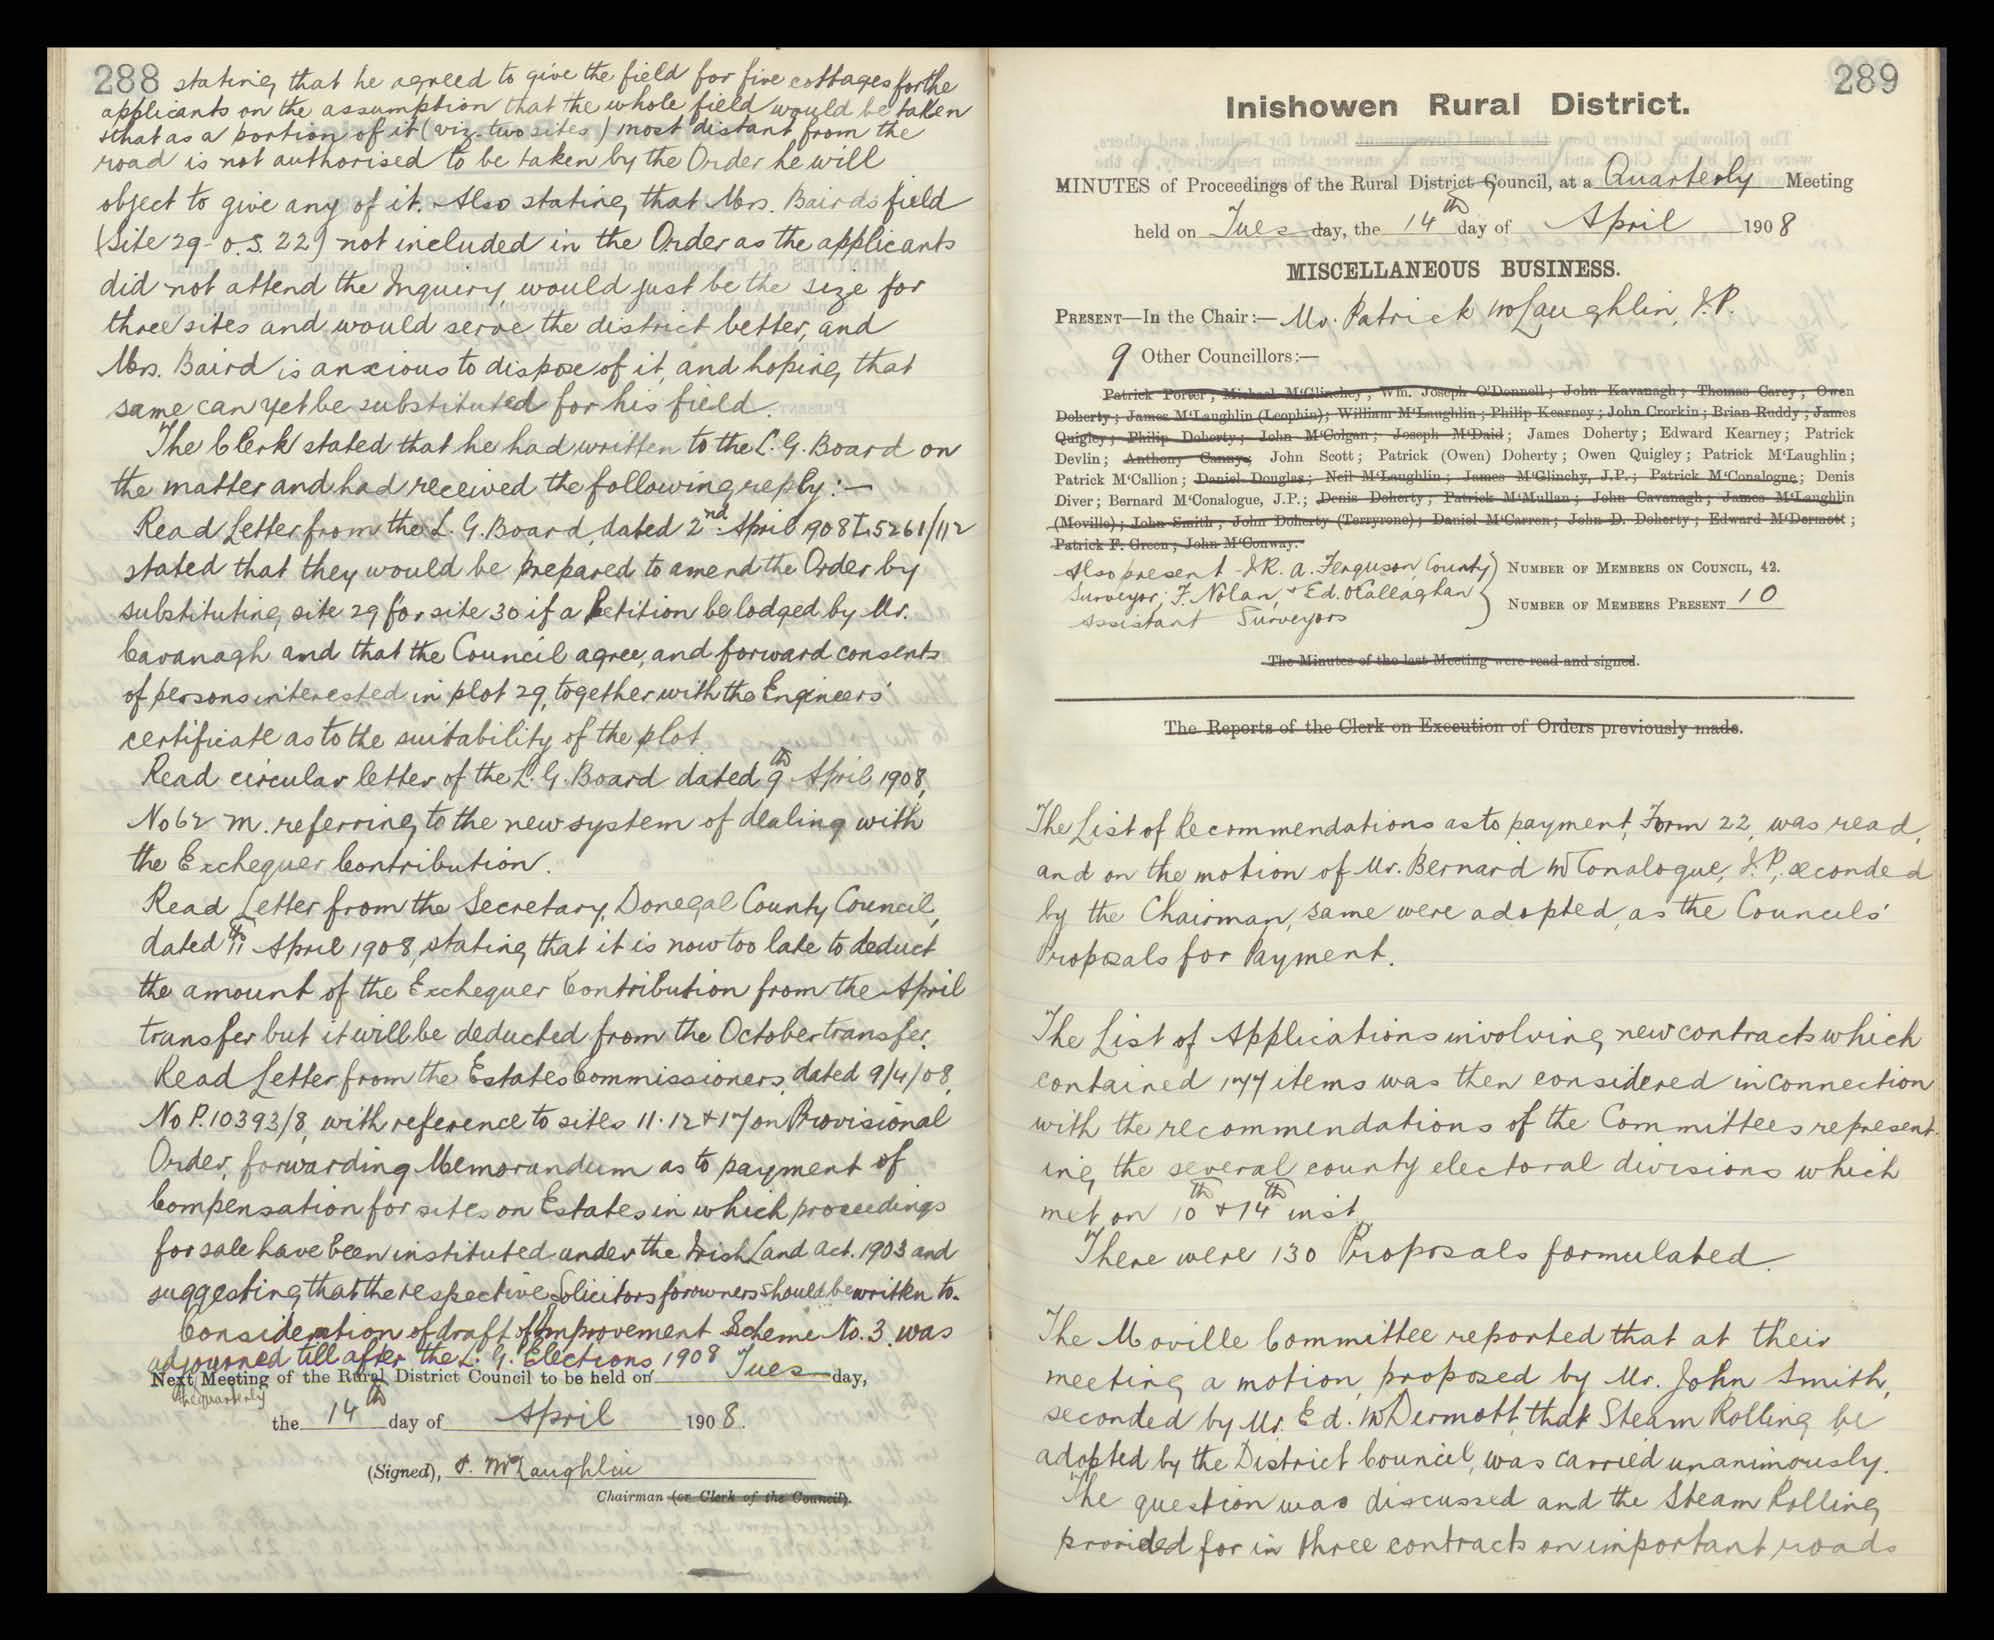 288 stating that he agreed to give the field for five cottages for the
applicants on the assumption that the whole field would be taken
that as a portion of it (viz. two sites) most distant from the
road is not authorised to be taken by the Order he will
object to give any of it. Also stating that Mrs. Bairds field
(Site 29 - O.S. 22) not included in the Order as the applicants
did not attend the Inquiry, would just be the size for
three sites and would serve the district better, and
Mrs. Baird is anxious to dispose of it, and hoping that
same can yet be substituted for his field.
The Clerk stated that he had written to the L. G. Board on
the matter and had received the following reply:—
Read Letter from the L. G. Board, dated 2nd April 1908 L5261/112
stated that they would be prepared to amend the Order by
substituting site 29 for site 30 if a Petition be lodged by Mr.
Cavanagh and that the Council agree, and forward consents
of persons interested in plot 29, together with the Engineers'
certificate as to the suitability of the plot
Read circular letter of the L. G. Board dated 9th April 1908,
No 62 M. referring to the new system of dealing with
the Exchequer Contribution.
Read Letter from the Secretary, Donegal County Council,
dated 11th April 1908, stating that it is now too late to deduct
the amount of the Exchequer Contribution from the April
transfer but it will be deducted from the October transfer.
Read Letter from the Estates Commissioners, dated 9/4/08,
No P.10393/8, with reference to sites 11. 12 & 17 on Provisional
Order, forwarding Memorandum as to payment of
Compensation for sites on Estates in which proceedings
for sale have been instituted under the Irish Land Act. 1903 and
suggesting that the respective Solicitors for owners should be written to.
Consideration of draft of Improvement Scheme No. 3. was
adjourned till after the L. G. Elections 1908
Next Meeting of the Rural District Council to be held on Tues day,
the quarterly
the 14th day of April 1908.
(Signed), P. McLaughlin
Chairman (or Clerk of the Council).
289
Inishowen Rural District.
MINUTES of Proceedings of the Rural District Council, at a Quarterly Meeting
held on Tues day, the 14th day of April 1908
MISCELLANEOUS BUSINESS.
PRESENT—In the Chair:— Mr. Patrick McLaughlin, J.P.
9 Other Councillors:—
Patrick Porter; Michael M'Glinchey; Wm. Joseph O'Donnell; John Kavanagh; Thomas Carey; Owen
Doherty; James M'Laughlin (Leophin); William M'Laughlin; Philip Kearney; John Crorkin; Brian Ruddy; James
Quigley; Philip Doherty; John M'Colgan; Joseph M'Daid; James Doherty; Edward Kearney; Patrick
Devlin; Anthony Canny; John Scott; Patrick (Owen) Doherty; Owen Quigley; Patrick M'Laughlin;
Patrick M'Callion; Daniel Douglas; Neil M'Laughlin; James M'Glinchy, J.P.; Patrick M'Conalogue; Denis
Diver; Bernard M'Conalogue, J.P.; Denis Doherty; Patrick M'Mullan; John Cavanagh; James M'Laughlin
(Moville); John Smith; John Doherty (Terryrone); Daniel M'Carron; John D. Doherty; Edward M'Dermott;
Patrick F. Green; John M'Conway.
Also present - J.R. A. Ferguson, County
Surveyor; F. Nolan, & Ed. O'Callaghan
Assistant Surveyors
NUMBER OF MEMBERS ON COUNCIL, 42.
NUMBER OF MEMBERS PRESENT 10
The Minutes of the last Meeting were read and signed.
The Reports of the Clerk on Execution of Orders previously made.
The List of Recommendations as to payment, Form 22, was read,
and on the motion of Mr. Bernard McConalogue, J.P., seconded
by the Chairman, same were adopted, as the Councils'
Proposals for Payment.
The List of Applications involving new contracts which
contained 177 items was then considered in connection
with the recommendations of the Committees represent-
ing the several county electoral divisions which
met on 10th & 14th inst
There were 130 Proposals formulated.
The Moville Committee reported that at their
meeting a motion, proposed by Mr. John Smith,
seconded by Mr. Ed. McDermott, that Steam Rolling be
adopted by the District Council, was carried unanimously.
The question was discussed and the Steam Rolling
provided for in three contracts on important roads